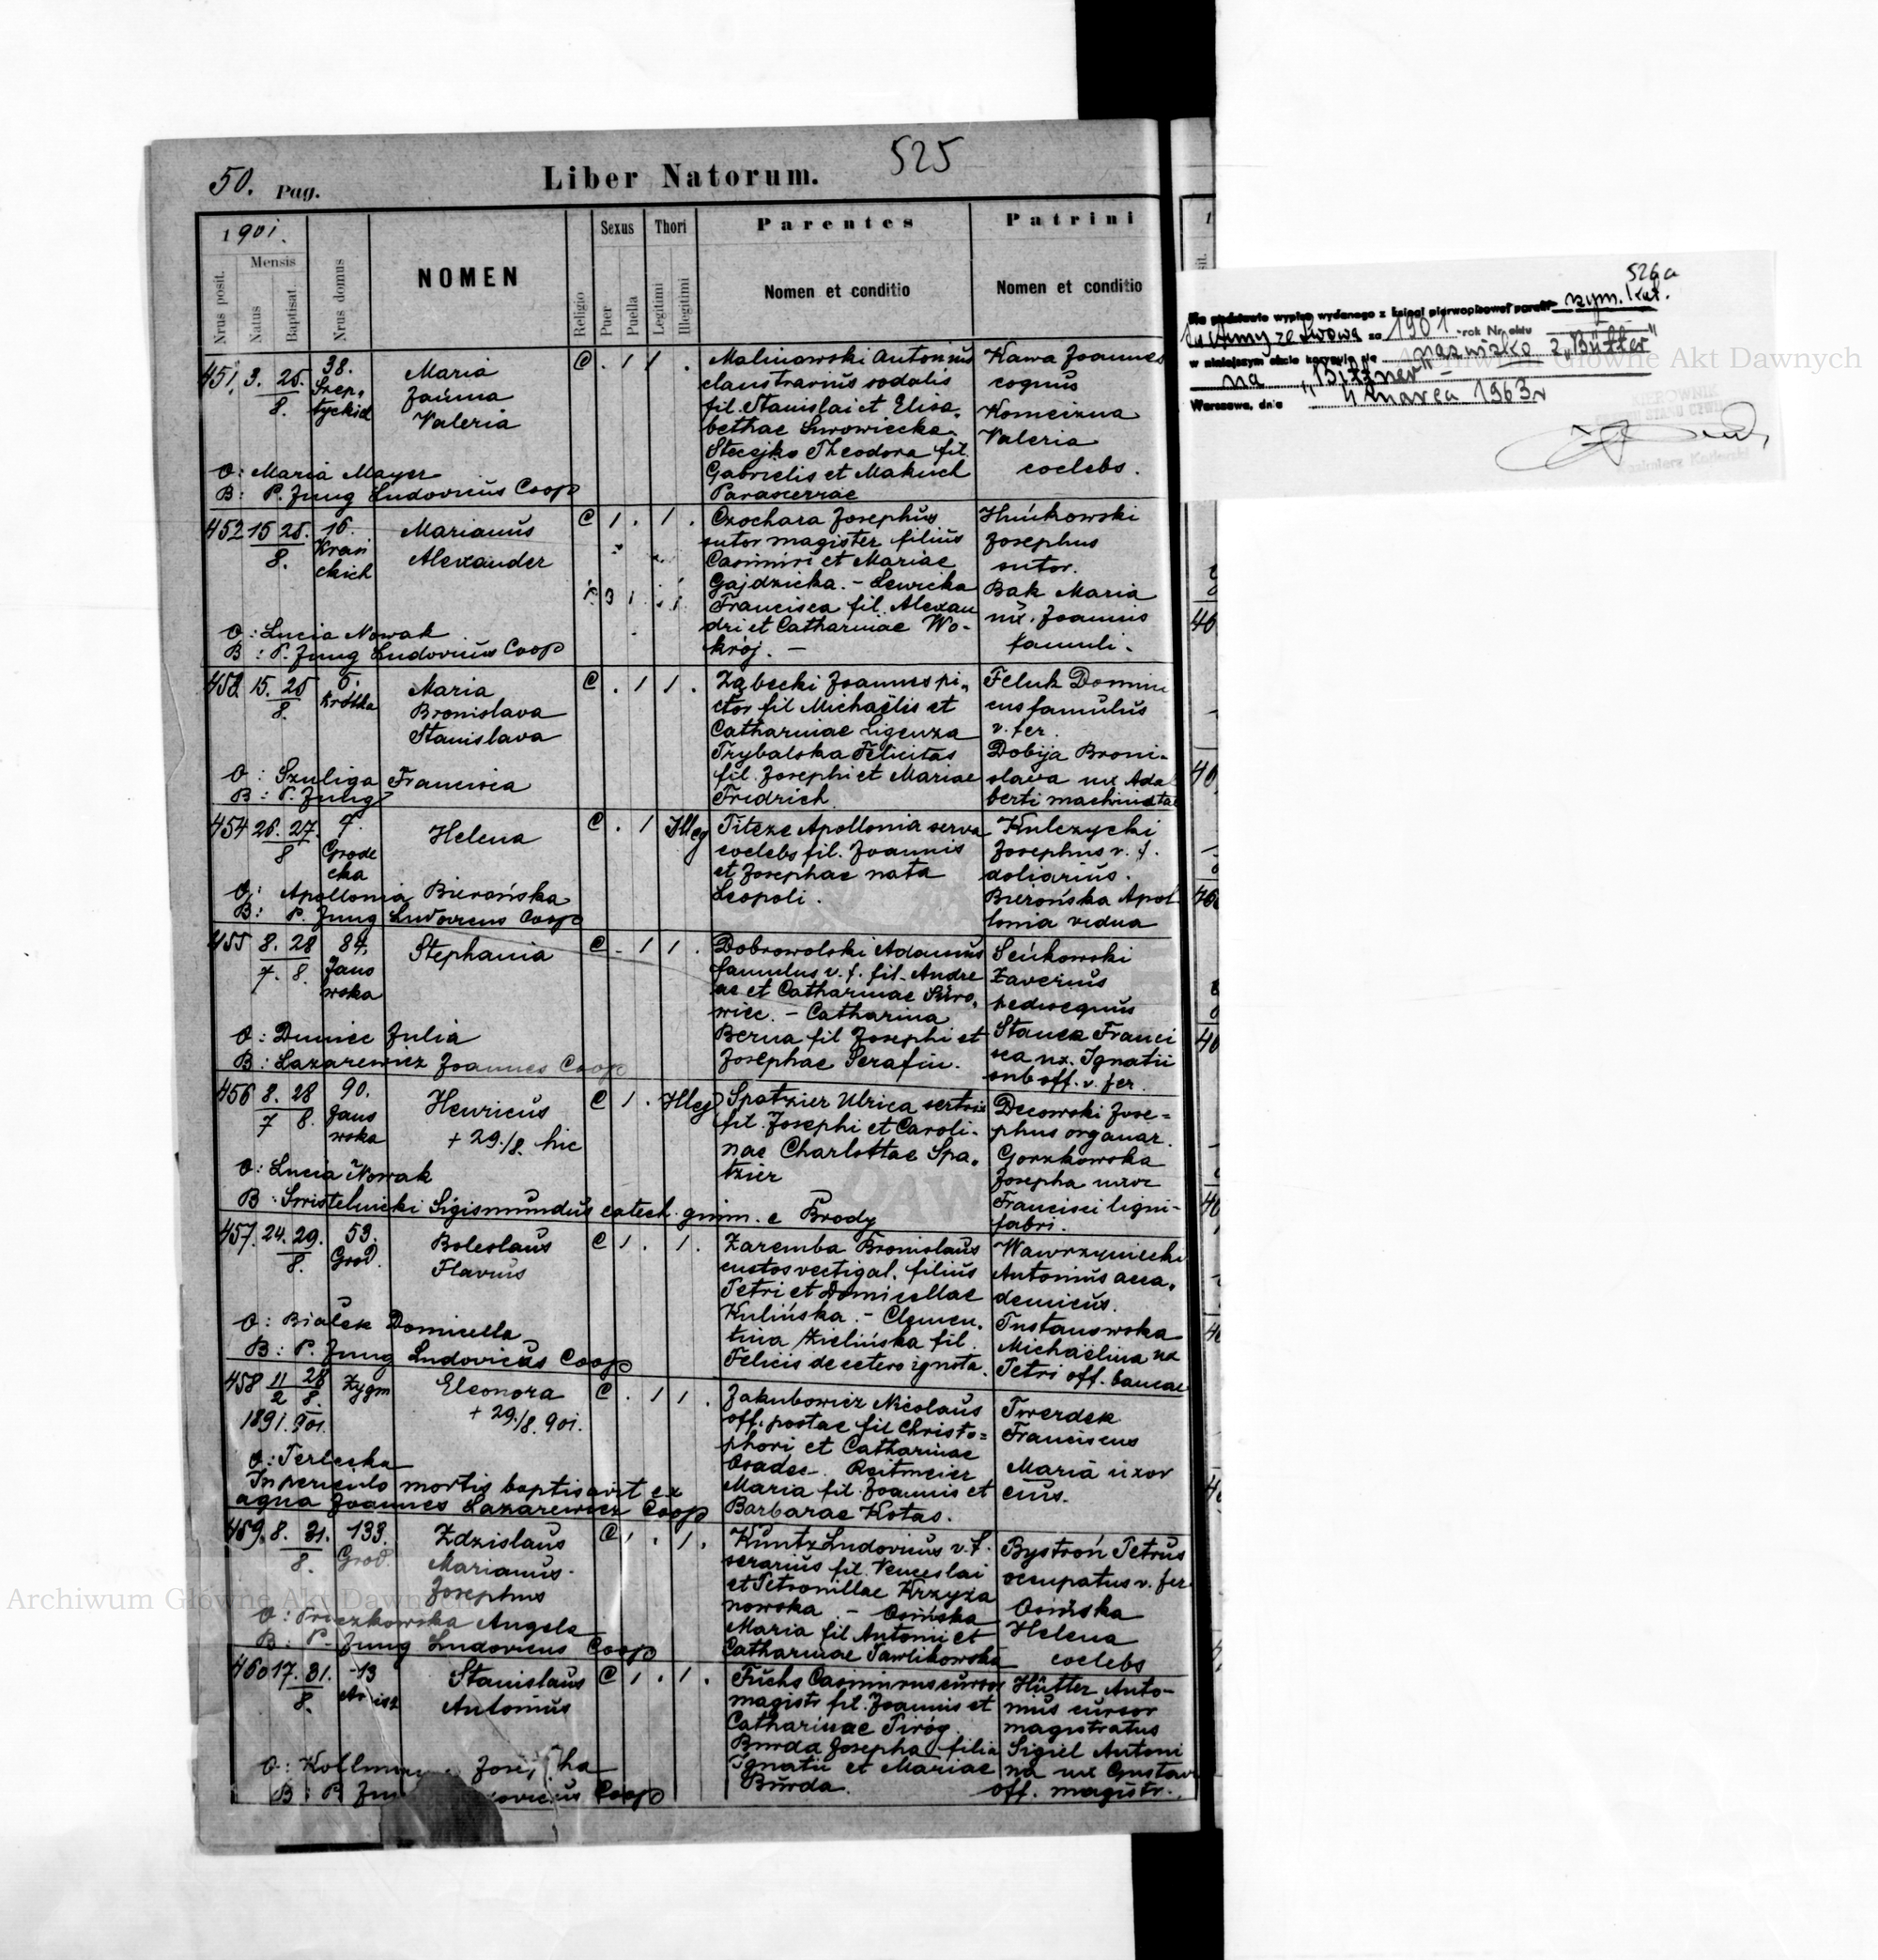 50. Pag.
Liber Natorum.
525
1901.
Nrus posit.
Mensis
Natus
Baptisat.
Nrus domus
NOMEN
Religio
Sexus
Puer
Puella
Thori
Legitimi
Illegitimi
Parentes
Nomen et conditio
Patrini
Nomen et conditio
451. 3. 25.
8.
38.
Szep,
tyckich
Maria
Janina
Valeria
C . 1 1 .
Malinowski Antonius
claustrarius sodalis
fil. Stanislai et Elisa,
bethae Surowiecka
Stecejko Theodora fil.
Gabrielis et Makuch
Parascevae
Kawa Joannes
coquus
Valeria
coelebs.
O: Maria Mayer
B: P. Jung Ludovicus Coop
452 15 25.
8.
16.
Krasi
ckich
Marianus
Alexander
C 1 . 1 .
Czochara Josephus
sutor magister filius
Casimiri et Mariae
Gajdzicka. - Lewicka
Francisca fil. Alexan
dri et Catharinae Wo-
krój. -
Huńkowski
Josephus
sutor.
Bak Maria
ux. Joannis
famuli.
O: Lucia Nowak
B: P. Jung Ludovicus Coop
453. 15. 25
8.
5.
Krótka
Maria
Bronislava
Stanislava
C . 1 1 .
Ząbecki Joannes pi,
ctor fil Michaëlis et
Catharinae Ligenza
Trybalska Felicitas
fil. Josephi et Mariae
Fridrich
Feluk Domini
cus famulus
v. fer.
Dobija Broni-
slava ux Ada
berti machinistae
O: Szuliga Francisca
B: P. Jung
454 26. 27.
8
7.
Grode
cka
Helena
C . 1 Illeg
Titeze Apollonia serva
coelebs fil. Joannis
et Josephae nata
Leopoli.
Kulczycki
Josephus v. f.
doliarius.
Bierońska Apol
lonia vidua
O: Apollonia Bierońska
B: P. Jung Ludovicus Coop
455 8. 28
7. 8.
84.
Jano
wska
Stephania
C - 1 1 .
Dobrowolski Adamus
famulus v. f. fil. Andre
ae et Catharinae Suro,
wiec. - Catharina
Berna fil Josephi et
Josephae Serafin.
Seńkowski
Xaverius
pedisequus
Stanek Franci
sca ux. Ignatii
sub off. v. fer.
O: Duniec Julia
B: Lazarewicz Joannes Coop
456 8. 28
7 8.
90.
Jano
wska
Henricus
+ 29./8. hic
C 1 . Illeg
Spatzier Ulrica sertrix
fil. Josephi et Caroli-
nae Charlottae Spa,
tzier
Decowski Jose=
phus organar.
Gorzkowska
Josepha uxor
Francisci ligni-
fabri.
O: Lucia Nowak
B: Swistelnicki Sigismundus catech. gimn. e Brody
457. 24. 29.
8.
53.
Grod.
Boleslaus
Flavius
C 1 . 1.
Zaremba Bronislaus
custos vectigal. filius
Petri et Domicellae
Kulińska. - Clemen,
tina Zielińska fil.
Felicis de cetero ignota.
Wawrzyniecki
Antonius aca,
demicus.
Tustanowska
Michaëlina ux
Petri off. bancae
O: Bialek Domicella
B: P. Jung Ludovicus Coop
458 11 28
2 8.
1891. 901.
Zygm
Eleonora
+ 29./8. 901.
C . 1 1 .
Jakubowicz Nicolaus
off. postae fil Christo=
phori et Catharinae
Osadec. Reitmeier
Maria fil. Joannis et
Barbarae Kotas.
Twerdek
Franciscus
Maria uxor
eius.
O: Terlecka
In periculo mortis baptisavit ex
aqua Joannes Lazarewicz Coop
459. 8. 31.
8.
133.
Grod.
Zdzislaus
Marianus
Josephus
C 1 . 1 .
Kuntz Ludovicus v. f.
serarius fil. Venceslai
et Petronillae Krzyża
nowska - Osińska
Maria fil Antonii et
Catharinae Pawlikowska
Bystroń Petrus
occupatus v. fer
Osińska
Helena
coelebs
O: Angela
B: P. Jung Ludovicus Coop
460 17. 31.
8.
13
Stanislaus
Antonius
C 1 . 1 .
Fuchs Casimirus cursor
magistr fil. Joannis et
Catharinae Piróg.
Burda Josepha filia
Ignatii et Mariae
Burda.
Hütter Anto-
nius cursor
magistratus
Sigiel Antoni
na ux Gustavi
off. magistr.
O: Josepha
B: P Coop
526a
Na podstawie wypisu wydanego z księgi pierwopisowej parafii rzym. kat.
Św. Anny ze Lwowa za 1901 rok Nr aktu
w niniejszym akcie koryguje się nazwisko z "Bütter"
na "Bitzner"
Warszawa, dnia 4 marca 1963 r
KIEROWNIK
URZĘDU STANU CYWIL
Kazimierz
Archiwum Główne Akt Dawnych
Archiwum Główne Akt Dawnych